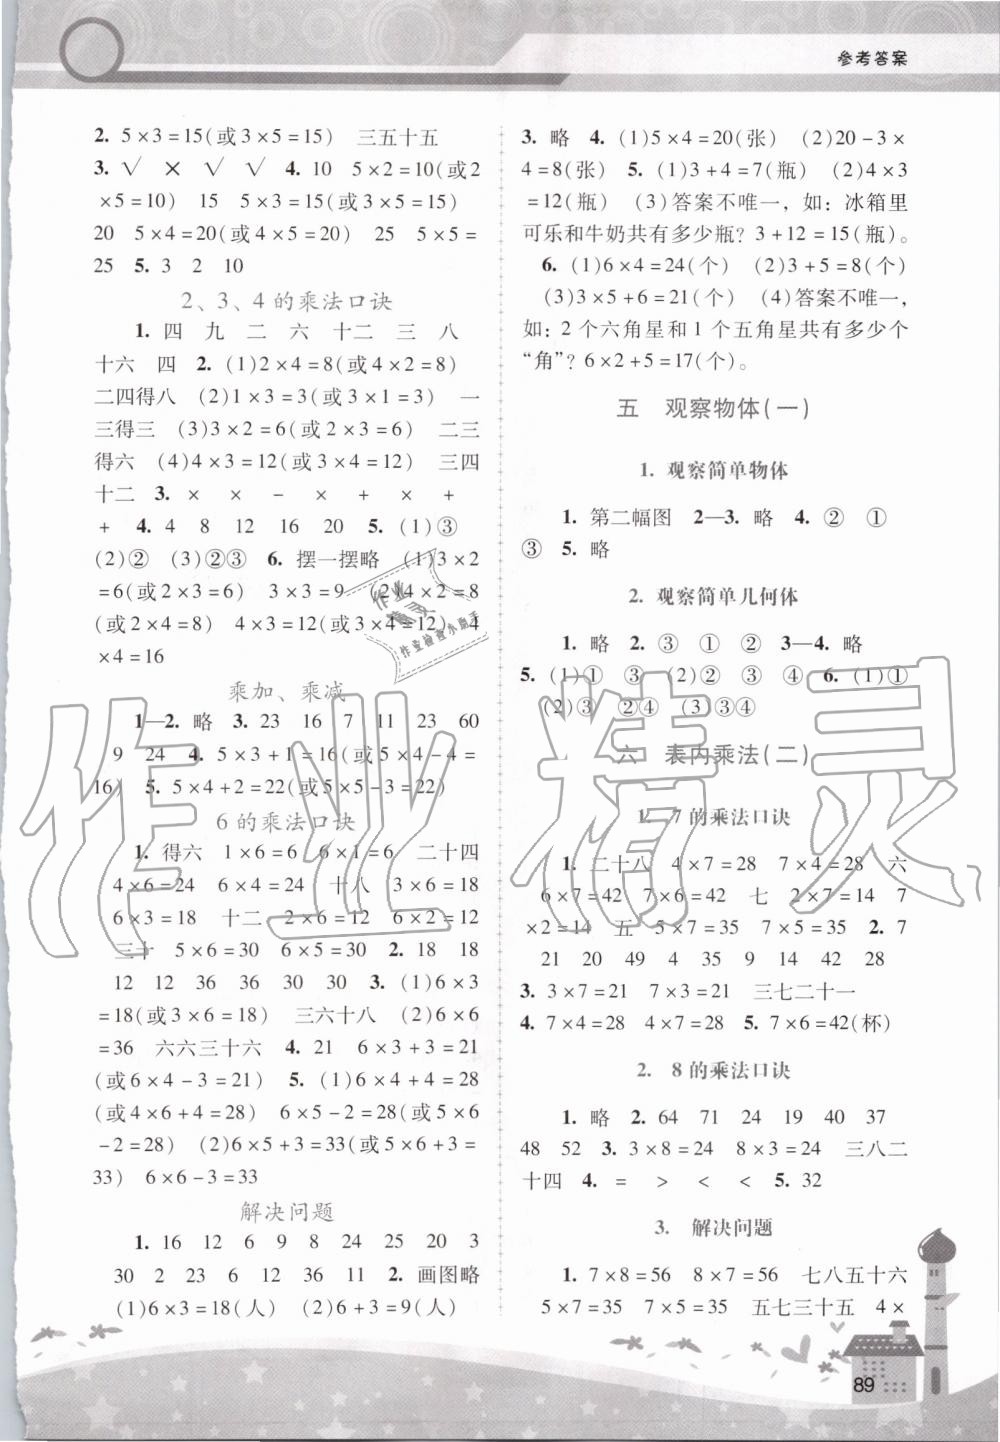 参考答案
2. 5×3=15(或3×5=15) 三五十五
3. √ × √ √ 4. 10 5×2=10(或2
×5=10) 15 5×3=15(或3×5=15)
20 5×4=20(或4×5=20) 25 5×5=
25 5. 3 2 10
2、3、4的乘法口诀
1. 四 九 二 六 十二 三 八
十六 四 2. (1)2×4=8(或4×2=8)
二四得八 (2)1×3=3(或3×1=3) 一
三得三 (3)3×2=6(或2×3=6) 二三
得六 (4)4×3=12(或3×4=12) 三四
十二 3. × × - × + × +
+ 4. 4 8 12 16 20 5. (1)③
(2)② (3)②③ 6. 摆一摆略 (1)3×2
=6(或2×3=6) 3×3=9 (2)4×2=8
(或2×4=8) 4×3=12(或3×4=12) 4
×4=16
乘加、乘减
1—2. 略 3. 23 16 7 11 23 60
9 24 4. 5×3+1=16(或5×4-4=
16) 5. 5×4+2=22(或5×5-3=22)
6的乘法口诀
1. 得六 1×6=6 6×1=6 二十四
4×6=24 6×4=24 十八 3×6=18
6×3=18 十二 2×6=12 6×2=12
三十 5×6=30 6×5=30 2. 18 18
12 12 36 36 30 30 3. (1)6×3
=18(或3×6=18) 三六十八 (2)6×6
=36 六六三十六 4. 21 6×3+3=21
(或6×4-3=21) 5. (1)6×4+4=28
(或4×6+4=28) 6×5-2=28(或5×6
-2=28) (2)6×5+3=33(或5×6+3=
33) 6×6-3=33
解决问题
1. 16 12 6 9 8 24 25 20 3
30 2 23 6 12 36 11 2. 画图略
(1)6×3=18(人) (2)6+3=9(人)
3. 略 4. (1)5×4=20(张) (2)20-3×
4=8(张) 5. (1)3+4=7(瓶) (2)4×3
=12(瓶) (3)答案不唯一，如：冰箱里
可乐和牛奶共有多少瓶？3+12=15(瓶)。
6. (1)6×4=24(个) (2)3+5=8(个)
(3)3×5+6=21(个) (4)答案不唯一，
如：2个六角星和1个五角星共有多少个
“角”？6×2+5=17(个)。
五 观察物体(一)
1. 观察简单物体
1. 第二幅图 2—3. 略 4. ② ①
③ 5. 略
2. 观察简单几何体
1. 略 2. ③ ① ② 3—4. 略
5. (1)① ③ (2)② ③ ④ 6. (1)①
(2)③ ②④ (3)③④
六 表内乘法(二)
1. 7的乘法口诀
1. 二十八 4×7=28 7×4=28 六
6×7=42 7×6=42 七 2×7=14 7
×2=14 五 5×7=35 7×5=35 2. 7
21 20 49 4 35 9 14 42 28
3. 3×7=21 7×3=21 三七二十一
4. 7×4=28 4×7=28 5. 7×6=42(杯)
2. 8的乘法口诀
1. 略 2. 64 71 24 19 40 37
48 52 3. 3×8=24 8×3=24 三八二
十四 4. = > < < 5. 32
3. 解决问题
1. 7×8=56 8×7=56 七八五十六
5×7=35 7×5=35 五七三十五 4×
89
作业精灵
作业检查小助手